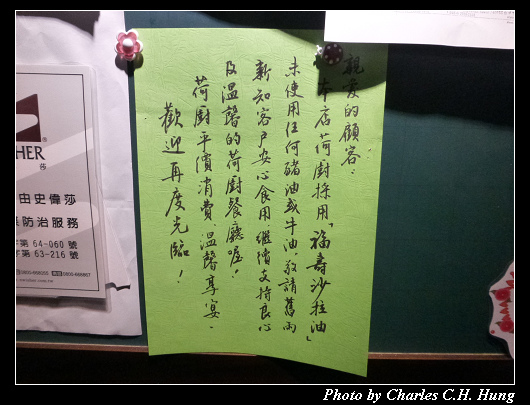 親愛的顧客：
本店荷廚採用「福壽沙拉油」
未使用任何豬油或牛油，敬請舊雨
新知客戶安心食用，繼續支持良心
及溫馨的荷廚餐廳喔！
荷廚平價消費，溫馨享宴。
歡迎再度光臨！
HER
田史偉莎
防治服務
字第 64-060 號
字第 63-216 號
Photo by Charles C.H. Hung